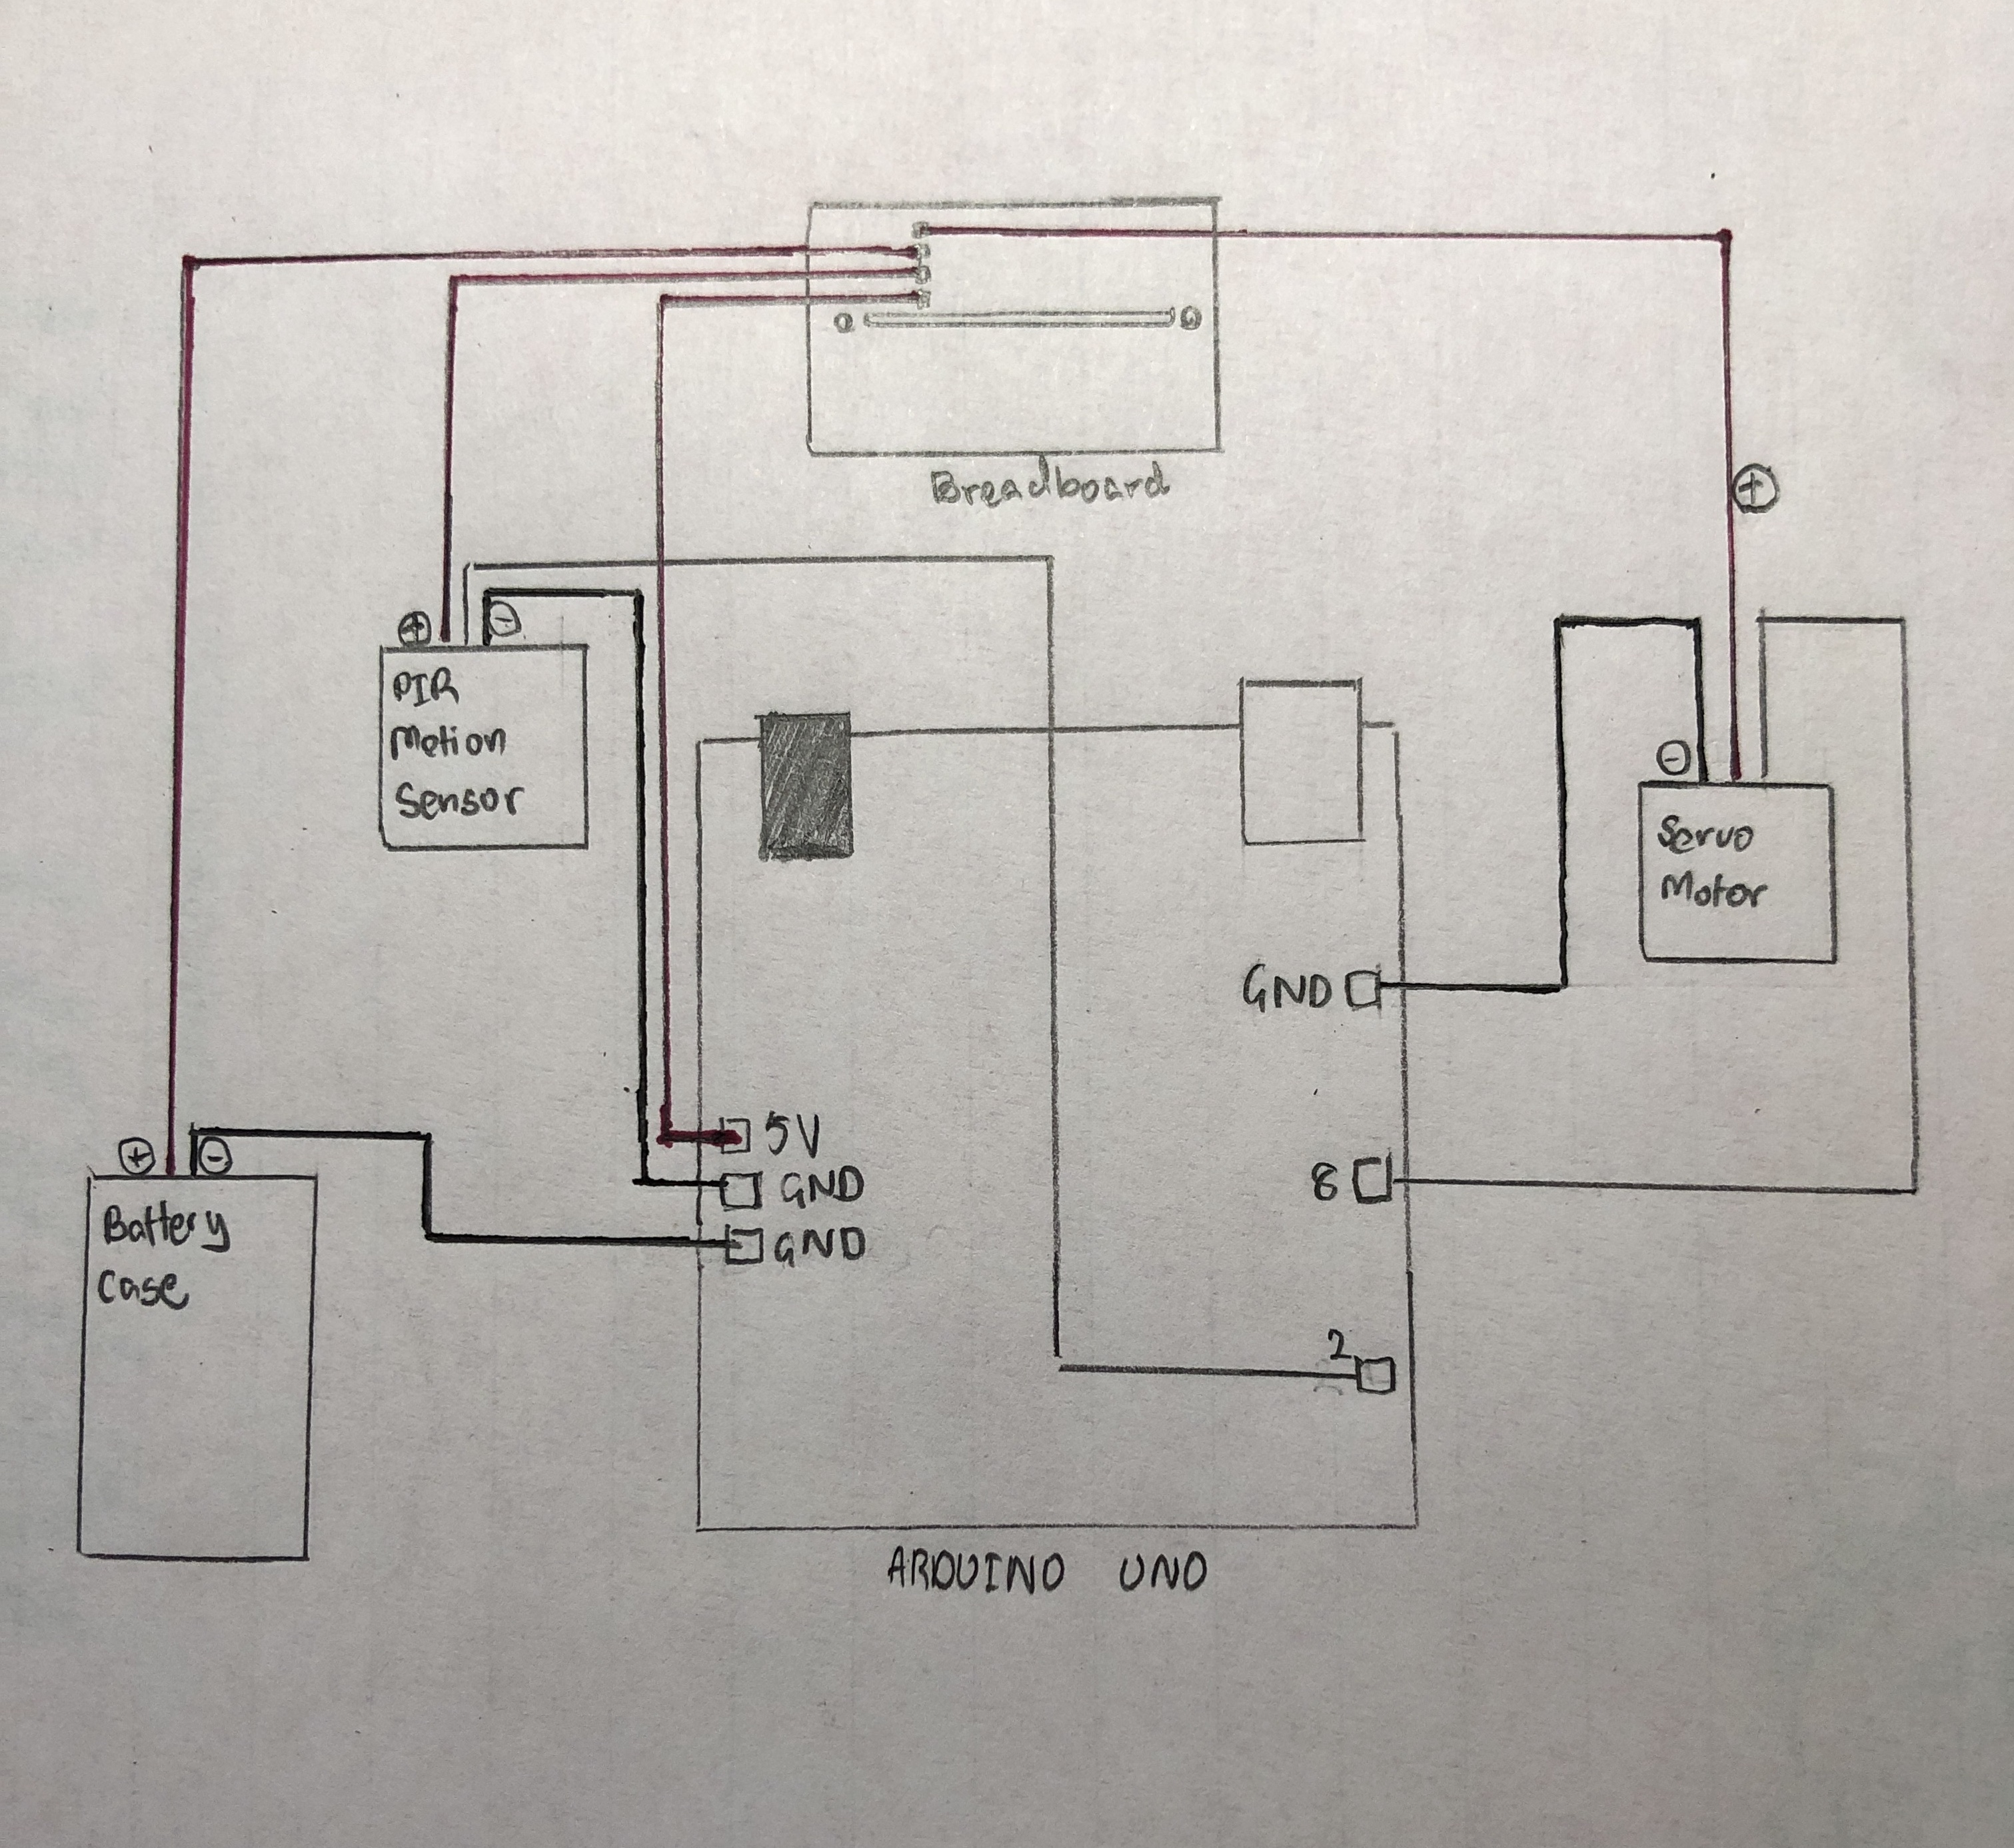 Breadboard
+
+
-
PIR
Motion
Sensor
-
Servo
Motor
GND
5V
GND
GND
+
-
Battery
Case
8
2
ARDUINO UNO